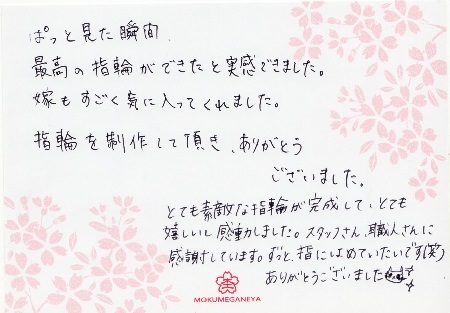 ぱっと見た瞬間、
最高の指輪ができたと実感できました。
嫁もすごく気に入ってくれました。
指輪を制作して頂き、ありがとう
ございました。
とても素敵な指輪が完成して、とても
嬉しいし感動しました。スタッフさん、職人さんに
感謝しています。ずっと、指にはめていたいです(笑)
ありがとうございました
MOKUMEGANEYA